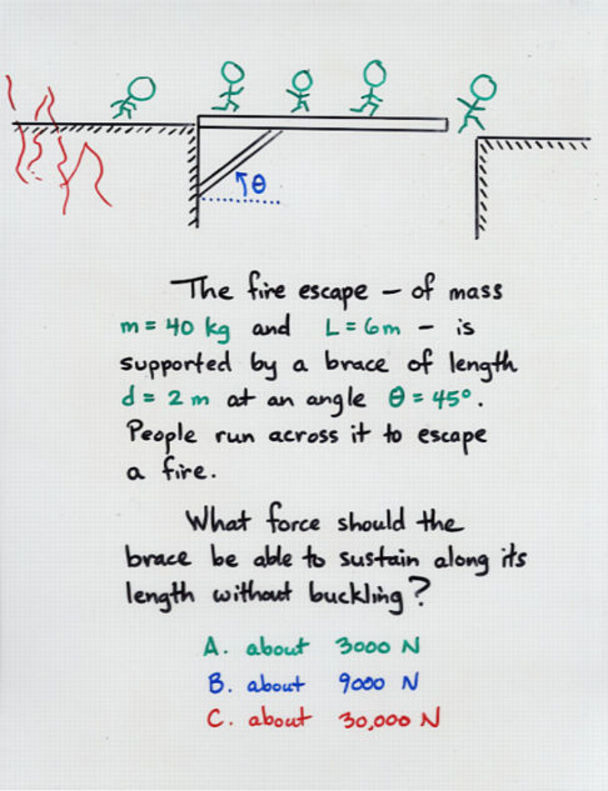 θ
The fire escape – of mass
m = 40 kg and L = 6m – is
supported by a brace of length
d = 2 m at an angle θ = 45°.
People run across it to escape
a fire.
What force should the
brace be able to sustain along its
length without buckling?
A. about 3000 N
B. about 9000 N
C. about 30,000 N